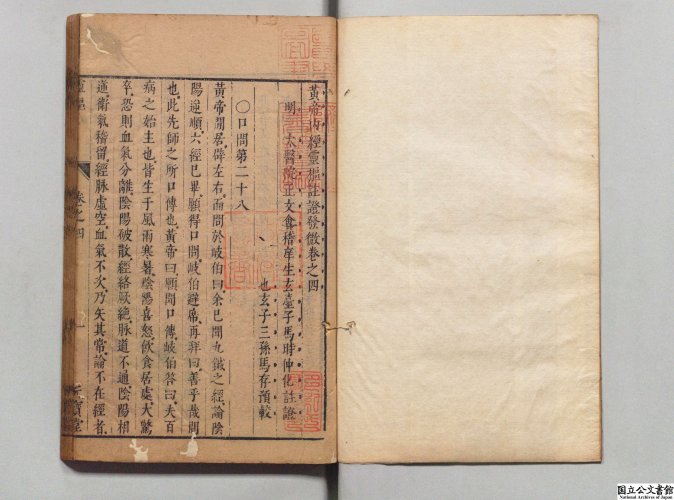 黃帝內經靈樞註證發微卷之四
明 太醫院正文會稽庠生玄臺子馬蒔仲化註證
也玄子三孫馬存預較
○口問第二十八
黃帝閒居辟左右而問於岐伯曰余已聞九鍼之經論陰
陽逆順六經已畢願得口問岐伯避席再拜曰善乎哉問
也此先師之所口傳也黃帝曰願聞口傳岐伯答曰夫百
病之始生也皆生于風雨寒暑陰陽喜怒飲食居處大驚
卒恐則血氣分離陰陽破散經絡厥絕脉道不通陰陽相
逆衛氣稽留經脉虛空血氣不次乃失其常論不在經者
卷之四
一
国立公文書館
National Archives of Japan